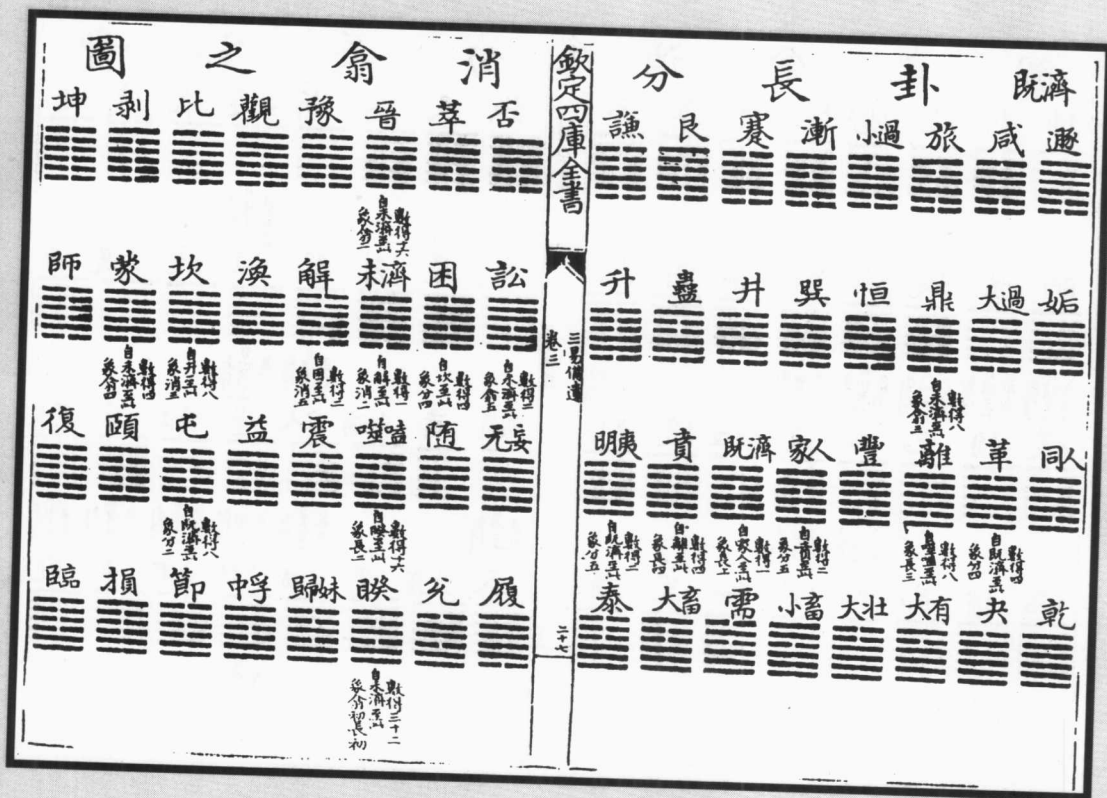 既濟卦長分
遯 咸 旅 小過 漸 蹇 艮 謙
姤 大過 鼎 恒 巽 井 蠱 升
數得八
自未濟至此
象翕三
同人 革 離 豐 家人 既濟 賁 明夷
數得四
自既濟至此
象分四
數得八
自噬嗑至此
象長三
數得二
自賁至此
象分五
數得一
自家人至此
象長上
數得四
自離至此
象長四
數得二
自既濟至此
象分五
乾 夬 大有 大壯 小畜 需 大畜 泰
欽定四庫全書
三易備遺
卷三
二十七
消翕之圖
否 萃 晉 豫 觀 比 剥 坤
數得十六
自未濟至此
象翕二
訟 困 未濟 解 渙 坎 蒙 師
數得二
自未濟至此
象翕五
數得四
自坎至此
象分四
數得一
自解至此
象消二
數得二
自困至此
象消五
數得八
自升至此
象消三
數得四
自未濟至此
象翕四
无妄 随 噬嗑 震 益 屯 頤 復
數得十六
自睽至此
象長二
數得八
自既濟至此
象分二
履 兊 睽 歸妹 中孚 節 損 臨
數得三十二
自未濟至此
象翕初長初